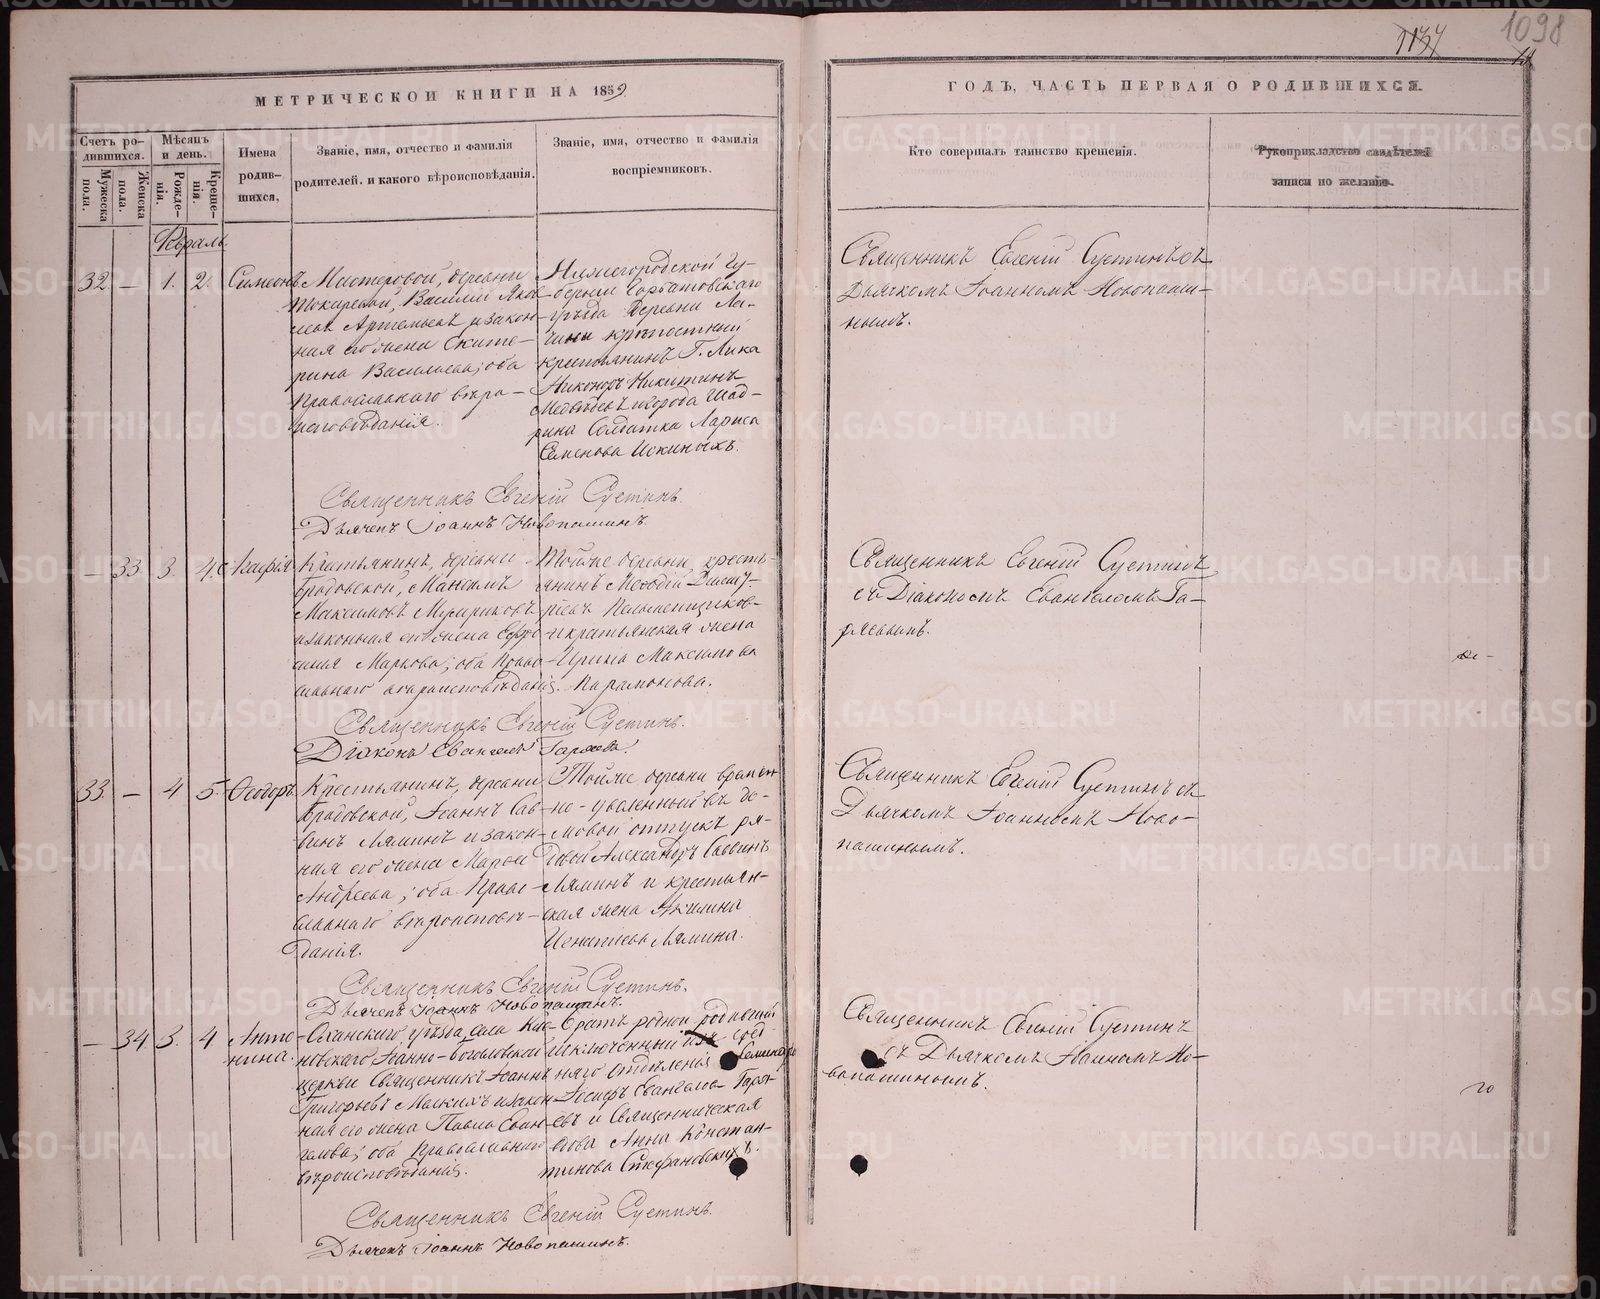 1137
1098
МЕТРИЧЕСКОЙ КНИГИ НА 1859
ГОДЪ, ЧАСТЬ ПЕРВАЯ О РОДИВШИХСЯ.
Счетъ ро-
дившихся.
Мужеска
пола.
Женска
пола.
Мѣсяцъ
и день.
Рожде-
нія.
Креще-
нія.
Имена
родив-
шихся,
Званіе, имя, отчество и фамилія
родителей. и какого вѣроисповѣданія.
Званіе, имя, отчество и фамилія
воспріемниковъ.
Кто совершалъ таинство крещенія.
Рукоприкладство свидѣтелей
записи по желанію.
Февраль
32. — 1. 2. Симеонъ
деревни
Василій Яков
левъ и закон-
ная его жена Екате-
рина Васильева; оба
Православнаго вѣро-
исповѣданія.
Нижегородской гу-
берніи Горбатовскаго
уѣзда деревни
крѣпостный
крестьянинъ Г.
Никоноръ Никитинъ
Медвѣдевъ и города Шад-
рина Солдатка Лариса
Семенова
Священникъ Евгеній Сустинъ съ
Дьячкомъ Іоанномъ Новопаши-
нымъ.
Священникъ Евгеній Сустинъ.
Дьячекъ Іоаннъ Новопашинъ.
— 33. 3. 4.
Крестьянинъ, деревни
Бродовской,
Максимовъ
и законная его жена Евфро-
синія Маркова; оба Право-
славнаго вѣроисповѣданія.
Тойже деревни, кресть-
янинъ Меѳодій Дмит-
ріевъ
и крестьянская жена
Ирина Максимова
Парамонова.
Священникъ Евгеній Сустинъ
съ Діакономъ Евангеломъ Га-
ряевымъ.
Священникъ Евгеній Сустинъ.
Діаконъ Евангелъ Гаряевъ.
33. — 4 5. Ѳеодоръ.
Крестьянинъ, деревни
Бродовской, Іоаннъ Сав-
винъ Ляминъ и закон-
ная его жена Марѳа
Андреева; оба Право-
славнаго вѣроисповѣ-
данія.
Тойже деревни времен
но-уволенный въ до-
мовой отпускъ ря-
довой Александръ Саввинъ
Ляминъ и крестьян-
ская жена Акилина
Игнатіева Лямина.
Священникъ Евгеній Сустинъ съ
Дьячкомъ Іоанномъ Ново-
пашинымъ.
Священникъ Евгеній Сустинъ.
Дьячекъ Іоаннъ Новопашинъ.
— 34. 3. 4 Анто-
нина.
уѣзда, села Кис-
ловскаго Іоанно-Богословской
церкви Священникъ Іоаннъ
Григорьевъ и закон-
ная его жена Павла Еван-
гелова; оба Православнаго
вѣроисповѣданія.
Братъ родной родившей
исключенный изъ сред
няго отдѣленія Семинаріи
Іосифъ Евангеловъ Гаря-
евъ и Священническая
вдова Анна Констан-
тинова Стефановскихъ.
Священникъ Евгеній Сустинъ
съ Дьячкомъ Іоанномъ Но-
вопашинымъ.
Священникъ Евгеній Сустинъ.
Дьячекъ Іоаннъ Новопашинъ.
METRIKI.GASO-URAL.RU